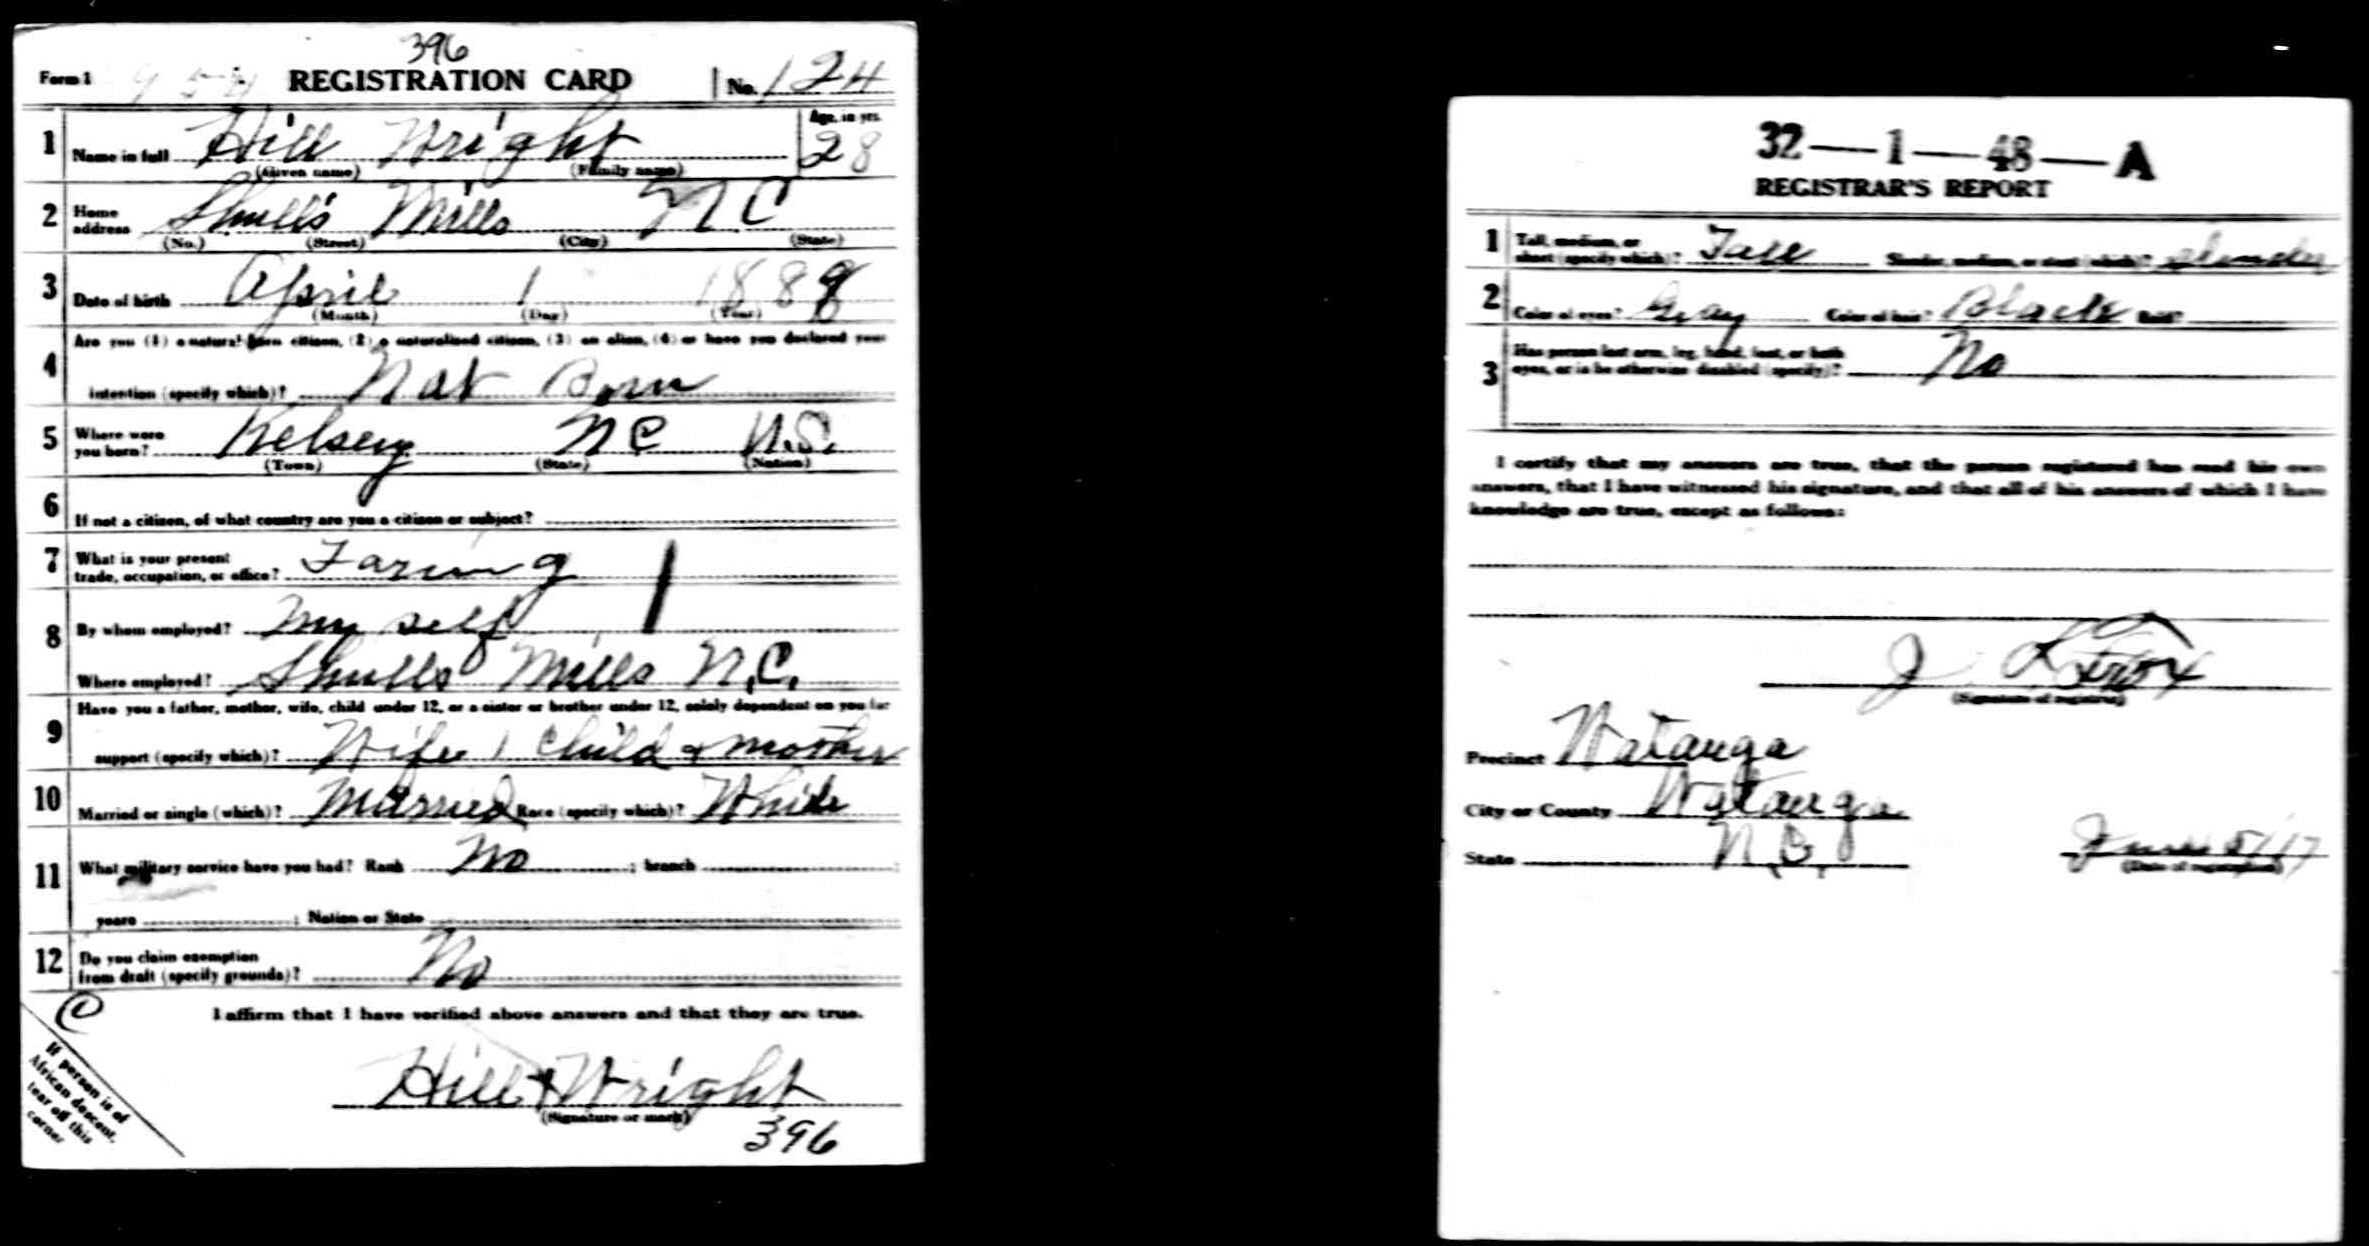 396
Form 1 REGISTRATION CARD No. 124
1 Name in full Hill Wright Age, in yrs. 28
(Given name) (Family name)
2 Home address Shull's Mills N C
(No.) (Street) (City) (State)
3 Date of birth April 1 1889
(Month) (Day) (Year)
Are you (1) a natural-born citizen, (2) a naturalized citizen, (3) an alien, (4) or have you declared your
4 intention (specify which)? Nat Born
5 Where were you born? Kelsey NC U.S.
(Town) (State) (Nation)
6 If not a citizen, of what country are you a citizen or subject?
7 What is your present trade, occupation, or office? Faring
8 By whom employed? My self
Where employed? Shulls Mills N.C.
Have you a father, mother, wife, child under 12, or a sister or brother under 12, solely dependent on you for
9 support (specify which)? Wife 1 child & mother
10 Married or single (which)? Married Race (specify which)? White
11 What military service have you had? Rank No ; branch ;
years ; Nation or State
12 Do you claim exemption from draft (specify grounds)? No
C
I affirm that I have verified above answers and that they are true.
Hill Wright
(Signature or mark)
396
If person is of
African descent,
tear off this
corner
32—1—48—A
REGISTRAR'S REPORT
1 Tall, medium, or short (specify which)? Tall Slender, medium, or stout (which)? slender
2 Color of eyes? Gray Color of hair? Black Bald?
3 Has person lost arm, leg, hand, foot, or both eyes, or is he otherwise disabled (specify)? No
I certify that my answers are true, that the person registered has read his own
answers, that I have witnessed his signature, and that all of his answers of which I have
knowledge are true, except as follows:
J L
(Signature of registrar)
Precinct Watauga
City or County Watauga
State N.C. June 5/17
(Date of registration)